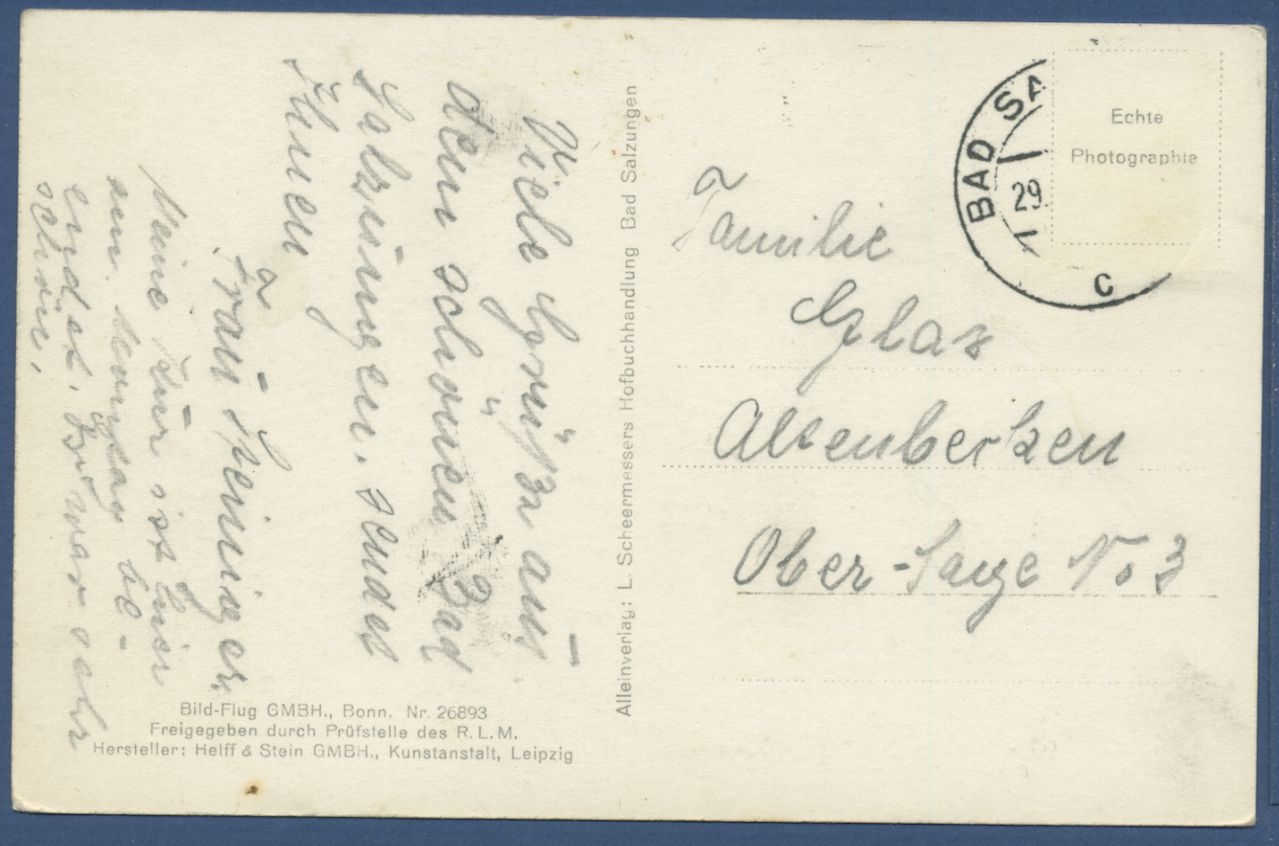 Viele Grüße aus
dem schönen Bad
Salzungen. sendet
Ihnen
Frau Heiniger.
Meine Kur ist hier
am Montag be-
endet. Es war sehr
schön.
Bild-Flug GMBH., Bonn. Nr. 26893
Freigegeben durch Prüfstelle des R.L.M.
Hersteller: Helff & Stein GMBH., Kunstanstalt, Leipzig
Alleinverlag: L. Scheermessers Hofbuchhandlung Bad Salzungen
BAD SA
29.
c
Echte
Photographie
Familie
Glas
Altenbeken
Ober-Sage No 3